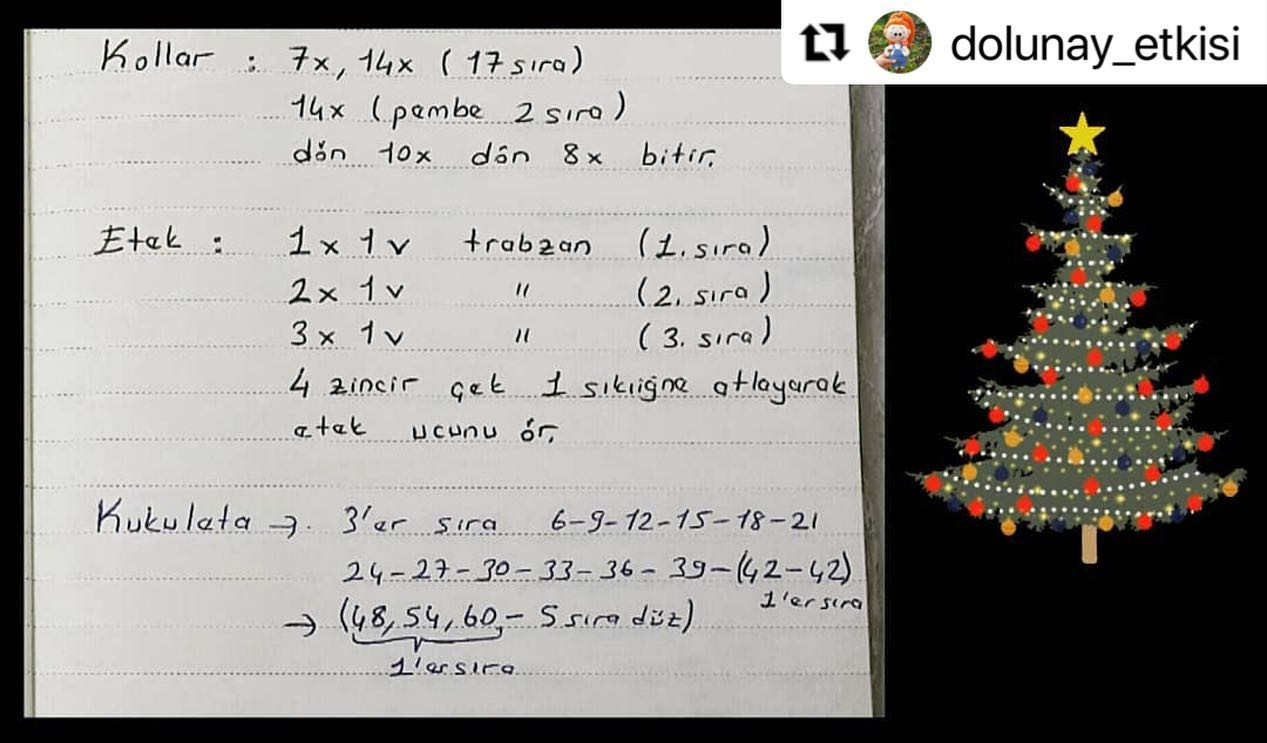 dolunay_etkisi
Kollar : 7x, 14x ( 17 sıra)
14x ( pembe 2 sıra)
dön 10x dön 8x bitir.
Etek : 1x 1v trabzan (1. sıra)
2x 1v " (2. sıra)
3x 1v " (3. sıra)
4 zincir çek 1 sıkiiğne atlayarak
etek ucunu ör.
Kukuleta → 3'er sıra 6-9-12-15-18-21
24-27-30-33-36-39-(42-42)
1'er sıra
→ (48, 54, 60 - 5 sıra düz)
1'er sıra